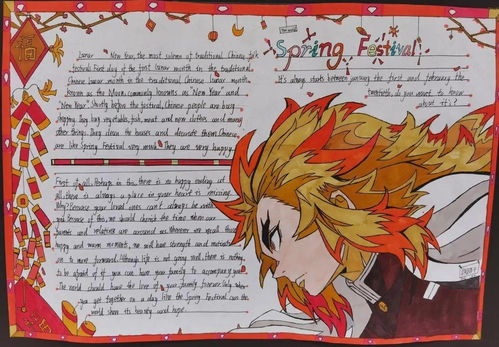 福
Spring Festival
It's always starts between january the first and february the
twentieth, do you want to know
about it?
Lunar New Year, the most solemn of traditional Chinese folk
festivals First day of the first lunar month in the traditional
Chinese lunar month in the traditional Chinese lunar month
known as the Moon, commonly known as "New Year" and
"New Year" Shortly before the festival, Chinese people are busy
shopping They buy vegetables, fish, meat and new clothes and many
other things. They clean the houses and decorate them. Chinese
are like Spring Festival very much. They are very happy.
First of all, Perhaps in this, there is no happy ending
all, there is always a place in your heart is missing
Why? because your loved ones can't always be with
you. because of this, we should cherish the time when our
parents and relatives are around us. Whenever we recall those
happy and warm moments, we will have strength and motivation
to move forward. Although life is not going well, there is nothing
to be afraid of if you can have your family to accompany you
The world should have the love of your family forever. Only when
you get together on a day like the Spring Festival can the
world show its beauty and hope.